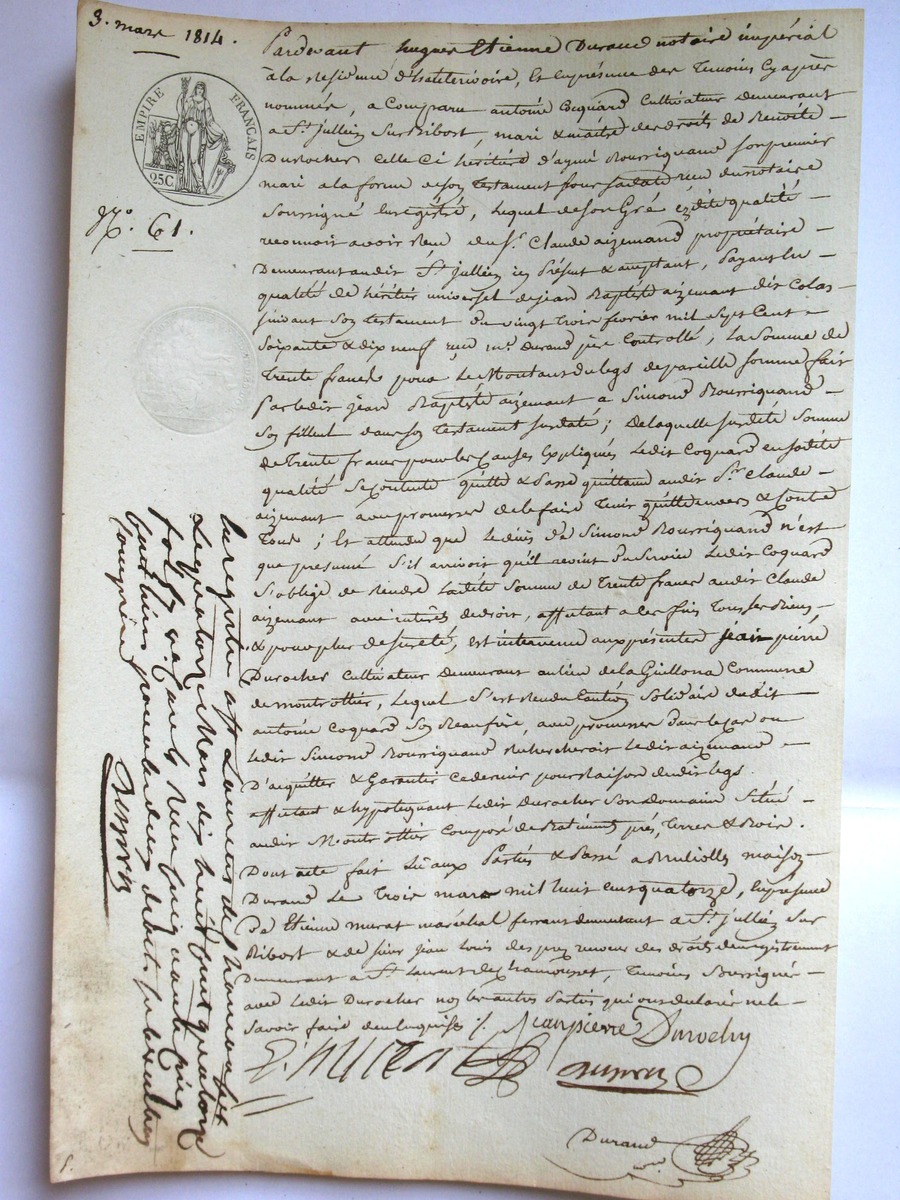 3. mars 1814.
EMPIRE FRANÇAIS
25C
N.o 61.
Pardevant hugues Etienne Durand notaire impérial
à la Residence d'hauterivoire, Et En présence des Temoins Cy après
nommés, a Comparu antoine Coquard Cultivateur Demeurant
a St. jullien Sur Bibost, mari & maitre des droits de Benoite
Durocher Celle Ci héritiere d'aymé Bourriquand Son premier
mari a la forme de Son Testament Sous Sa date reçu du notaire
Soussigné Enregistré, Lequel de Son Gré Ez dite qualité
reconnoit avoir Reçu du Sr. Claude aizemand propriétaire
Demeurant audit St. jullien ici Présent & acceptant, Payant En
qualité de héritier universel de jean Baptiste aizemant dit Colas
Suivant Son testament du vingt Trois fevrier mil Sept Cent
Soixante & dix neuf reçu me. Durand père Controllé, la Somme de
Trente francs pour Le Montant du legs de pareille Somme fait
Par ledit jean Baptiste aizemant a Simond Bourriquand
Son filleul dans Son Testament Surdaté; De laquelle Surdite Somme
de Trente francs pour les Causes Expliquées Ledit Coquard en Sadite
qualité Se Contente quitte & Passe quittance audit Sr. Claude
aizemant avec promesse de le faire Tenir quitte envers & Contre
Tous; Et attendu que Le décès du Simond Bourriquand n'est
que présumé S'il arrivoit qu'il revint du Service Ledit Coquard
S'oblige de Rendre Ladite Somme de Trente francs audit Claude
aizemant avec intérêts de droit, affectant a Ces fins Tous Ses Biens
& pour plus de Sureté, est intervenu aux présentes jean pierre
Durocher Cultivateur Demeurant au lieu de la Guillona Commune
de montrottier, Lequel S'est Rendu Caution Solidaire dudit
antoine Coquard Son Beaufrère, avec promesse dans le Cas ou
Ledit Simond Bourriquand Rechercheroit Ledit aizemand
D'acquitter & Garantir Ce dernier pour Raison dudit legs.
affectant & hypotequant Ledit Durocher Son Domaine Situé
audit Montrottier Composé de Batiments, prés, Terres & Bois.
Dont acte fait Lu aux Parties & Passé a Brullioles maison
Durand Le Trois mars mil huit Cent quatorze, En présence
De Etienne murat maréchal ferrant demeurant a St. jullien Sur
Bibost & de Sieur jean Louis des prez receveur des droits d'enregistrement
Demeurant a St. Laurent de Chamousset, Temoins Soussignés
avec Ledit Durocher non les autres Parties qui ont déclaré ne le
Savoir faire de ce Enquises
Jean pierre Durochy
E. Murat
Durand
Enregistré à St Laurent de Chamousset
Le quatorze Mars dix huit Cent quatorze